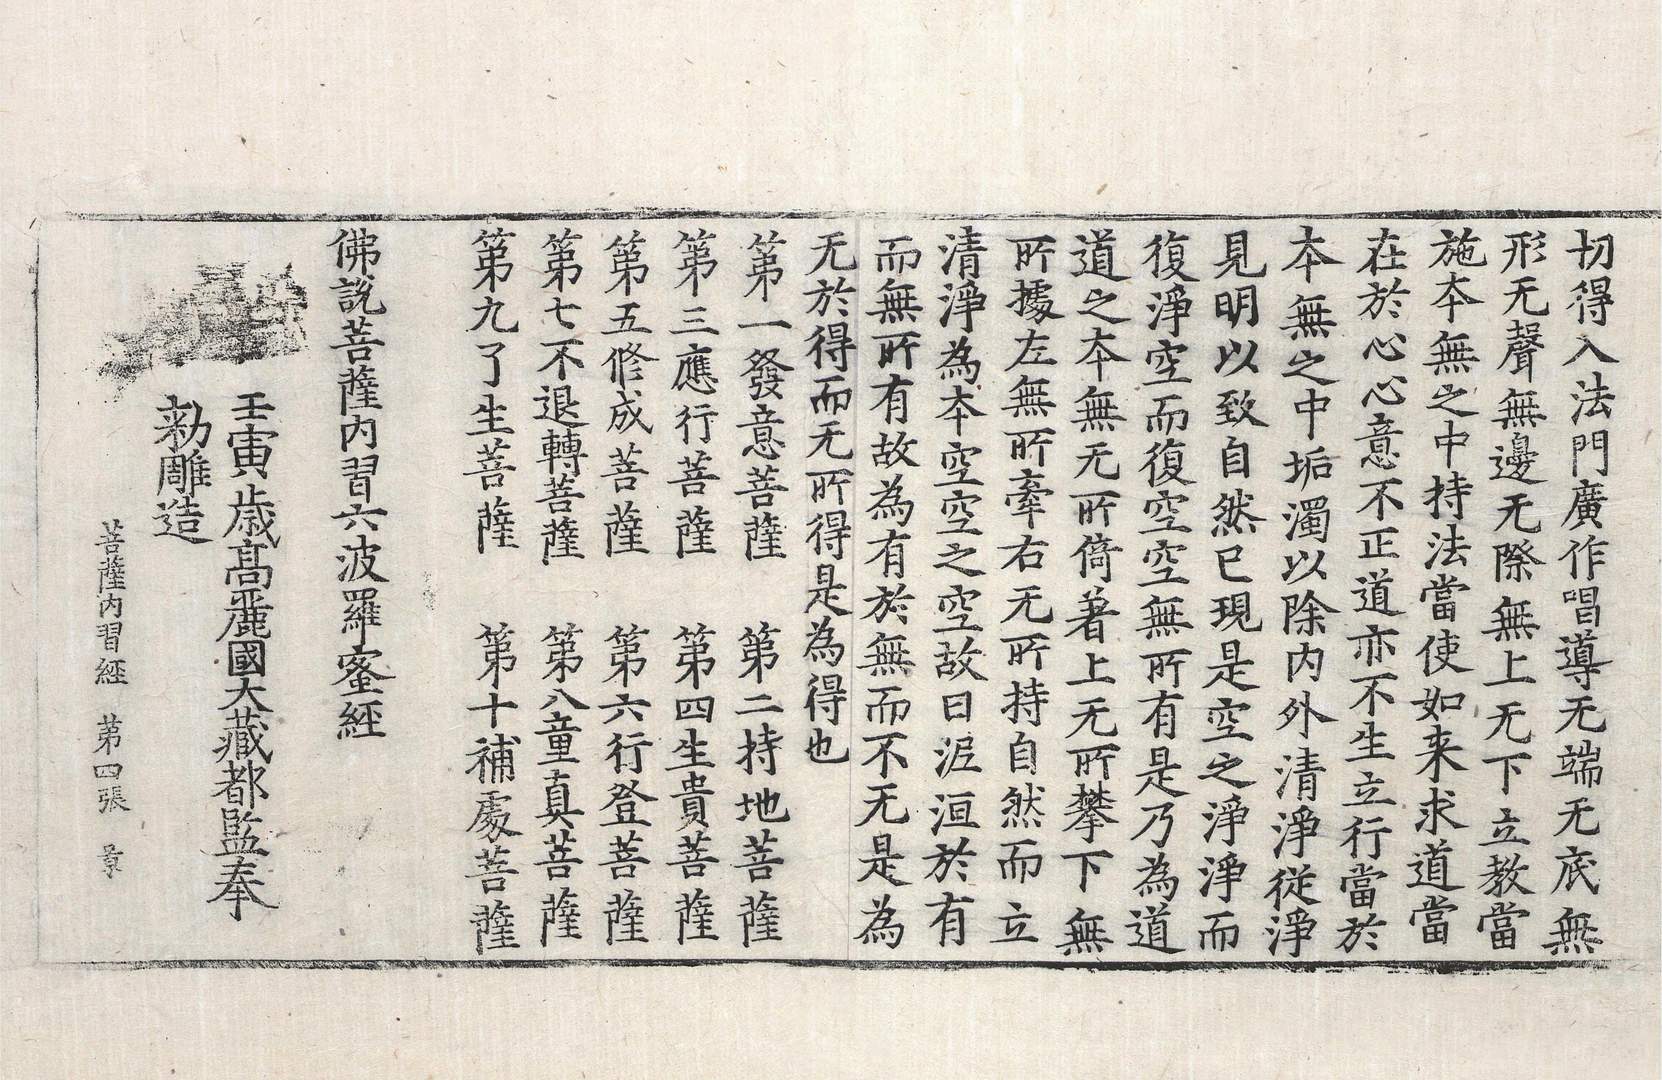 切得入法門廣作唱導无端无底無
形无聲無邊无際無上无下立教當
施夲無之中持法當使如来求道當
在於心心意不正道亦不生立行當於
夲無之中垢濁以除内外清淨從淨
見明以致自然已現是空之淨淨而
復淨空而復空空無所有是乃為道
道之夲無无所倚著上无所攀下無
所據左無所牽右无所持自然而立
清淨為夲空空之空故曰泥洹於有
而無所有故為有於無而不无是為
无於得而无所得是為得也
第一發意菩薩 第二持地菩薩
第三應行菩薩 第四生貴菩薩
第五修成菩薩 第六行登菩薩
第七不退轉菩薩 第八童真菩薩
第九了生菩薩 第十補處菩薩
佛說菩薩内習六波羅蜜經
壬寅歳高麗國大藏都監奉
勑雕造
菩薩内習經 第四張 景